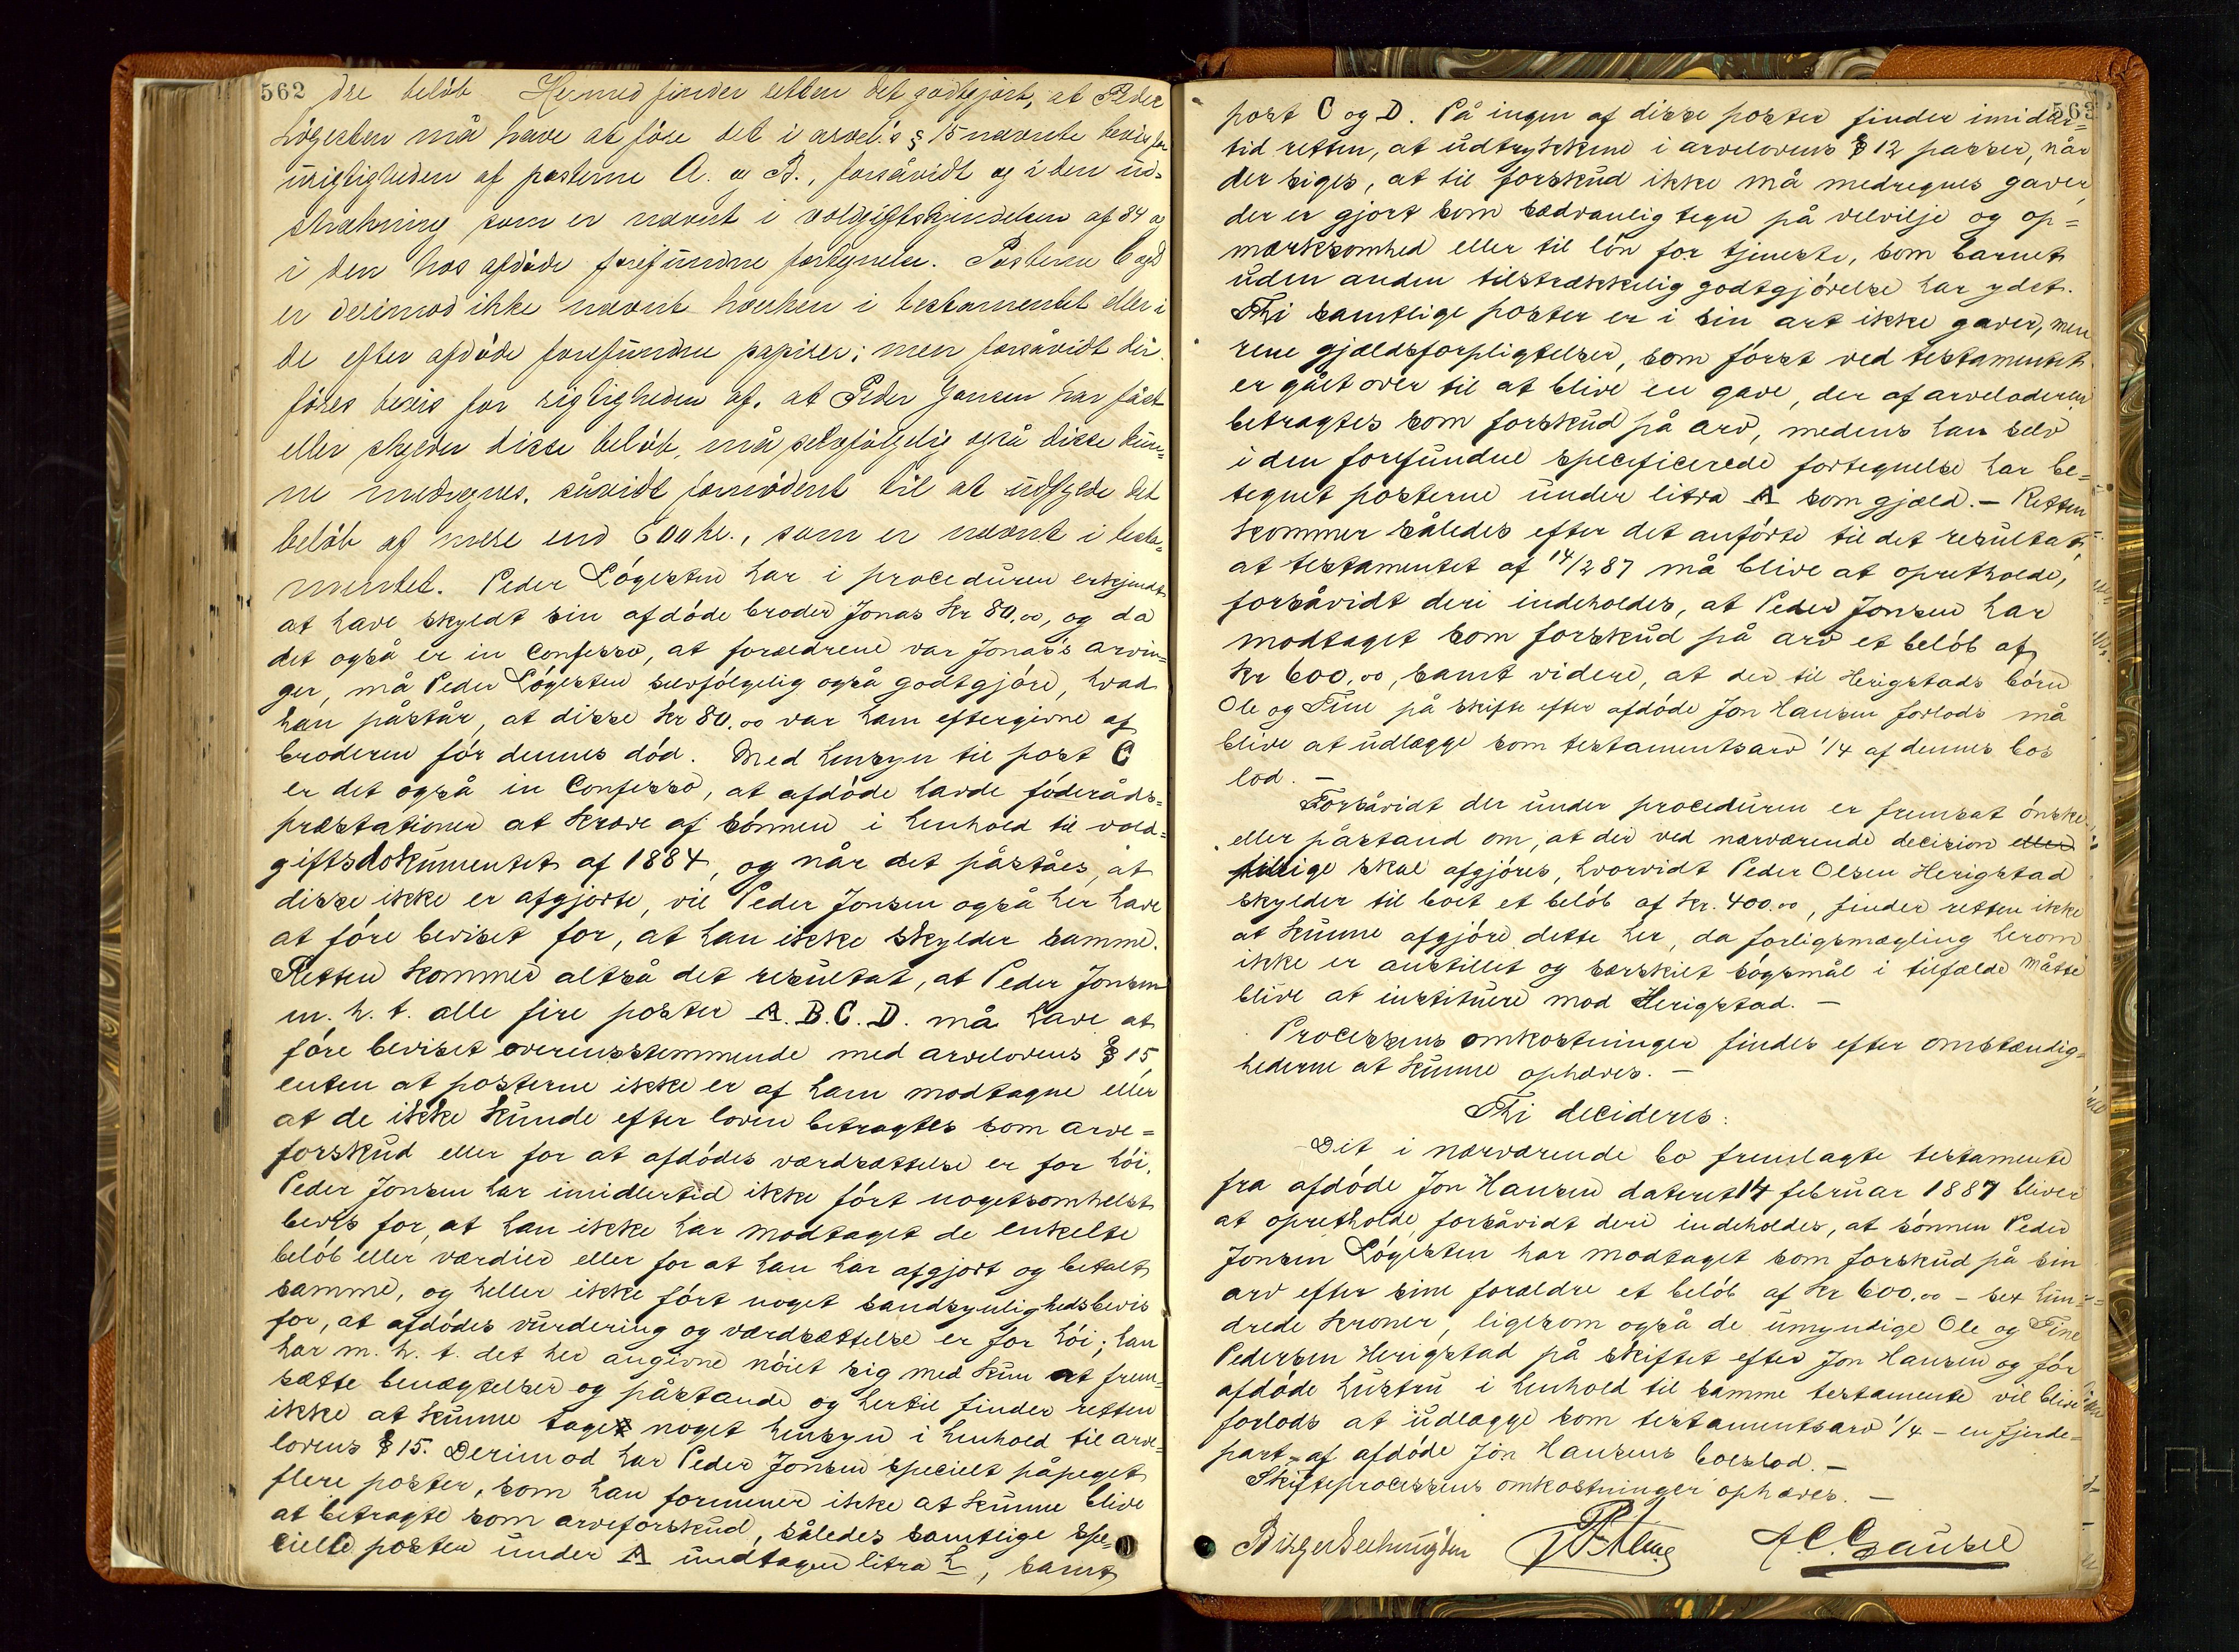 562
dre beløb. Hermed finder retten det godtgjort, at Peder
Løgesten må have at føre det i arvel.s § 15 nævnte bevis for
urigtigheden af posterne A. og B., forsåvidt og i den ud-
strækning som er nævnt i voldgiftskjendelsen af 84 og
i den hos afdøde forefundne fortegnelse. Posterne C og D
er derimod ikke nævnt hverken i testamentet eller i
de efter afdøde forefundne papirer; men forsåvidt der
føres bevis for rigtigheden af, at Peder Jonsen har fået
eller skylder disse beløb, må selvfølgelig også disse kun-
ne medregnes, såvidt fornødent til at udfylde det
beløb af mere end 600 kr., som er nævnt i testa-
mentet. Peder Løgesten har i proceduren erkjendt
at have skyldt sin afdøde broder Jonas Kr 80.00, og da
det også er in Confesso, at forældrene var Jonas's arvin-
ger, må Peder Løgesten selvfølgelig også godtgjøre, hvad
han påstår, at disse Kr 80.00 var ham eftergivne af
broderen før dennes død. Med hensyn til post C
er det også in Confesso, at afdøde havde føderåds-
præstationer at kræve af sønnen i henhold til vold-
giftsdokumentet af 1884, og når det påståes, at
disse ikke er afgjorte, vil Peder Jonsen også her have
at føre beviset for, at han ikke skylder samme.
Retten kommer altså det resultat, at Peder Jonsen
m. h. t. alle fire poster A. B. C. D. må have at
føre beviset overensstemmende med arvelovens § 15,
enten at posterne ikke er af ham modtagne eller
at de ikke kunde efter loven betragtes som arve=
forskud eller for at afdødes værdsættelse er for høi.
Peder Jonsen har imidlertid ikke ført nogetsomhelst
bevis for, at han ikke har modtaget de enkelte
beløb eller værdier eller for at han har afgjort og betalt
samme, og heller ikke ført noget sandsynlighedsbevis
for, at afdødes vurdering og værdsættelse er for høi; han
har m. h. t. det her angivne nøiet sig med kun at frem-
sætte benægtelser og påstande og hertil finder retten
ikke at kunne tage noget hensyn i henhold til arve-
lovens § 15. Derimod har Peder Jonsen specielt påpeget
flere poster, som han formener ikke at kunne blive
at betragte som arveforskud, således samtlige spe-
cielle poster under A undtagen litra h, samt
563
post C og D. På ingen af disse poster finder imidler=
tid retten, at udtrykkene i arvelovens § 12 passer, når
der siges, at til forskud ikke må medregnes gaver,
der er gjort som sædvanlig tegn på velvilje og op=
mærksomhed eller til løn for tjeneste, som barnet
uden anden tilstrækkelig godtgjørelse har ydet.
Thi samtlige poster er i sin art ikke gaver, men
rene gjældsforpligtelser, som først ved testamentet
er gået over til at blive en gave, der af arveladeren
betragtes som forskud på arv, medens han selv
i den forefundne specificerede fortegnelse har be-
tegnet posterne under litra A som gjæld. – Retten
kommer således efter det anførte til det resultat,
at testamentet af 14/2 87 må blive at opretholde,
forsåvidt deri indeholdes, at Peder Jonsen har
modtaget som forskud på arv et beløb af
Kr 600.00, samt videre, at der til Herigstads børn
Ole og Tine på skifte efter afdøde Jon Hansen forlods må
blive at udlægge som testamentsarv 1/4 af dennes bos
lod. –
Forsåvidt der under proceduren er fremsat ønske
eller påstand om, at der ved nærværende decision eller
tillige skal afgjøres, hvorvidt Peder Olsen Herigstad
skylder til boet et beløb af Kr. 400.00, finder retten ikke
at kunne afgjøre dette her, da forligsmægling herom
ikke er anstillet og særskilt søgsmål i tilfælde måtte
blive at instituere mod Herigstad. –
Processens omkostninger findes efter omstændig-
hederne at kunne ophæves. –
Thi decideres:
Det i nærværende bo fremlagte testamente
fra afdøde Jon Hansen dateret 14 februar 1887 bliver
at opretholde, forsåvidt deri indeholdes, at sønnen Peder
Jonsen Løgesten har modtaget som forskud på sin
arv efter sine forældre et beløb af Kr 600.00 – sex hun-
drede Kroner, ligesom også de umyndige Ole og Tine
Pedersen Herigstad på skiftet efter Jon Hansen og før
afdøde hustru i henhold til samme testamente vil blive
forlods at udlægge som testamentsarv 1/4 – en fjerde-
part – af afdøde Jon Hansens boeslod. –
Skifteprocessens omkostninger ophæves. –
A. C. Gausel